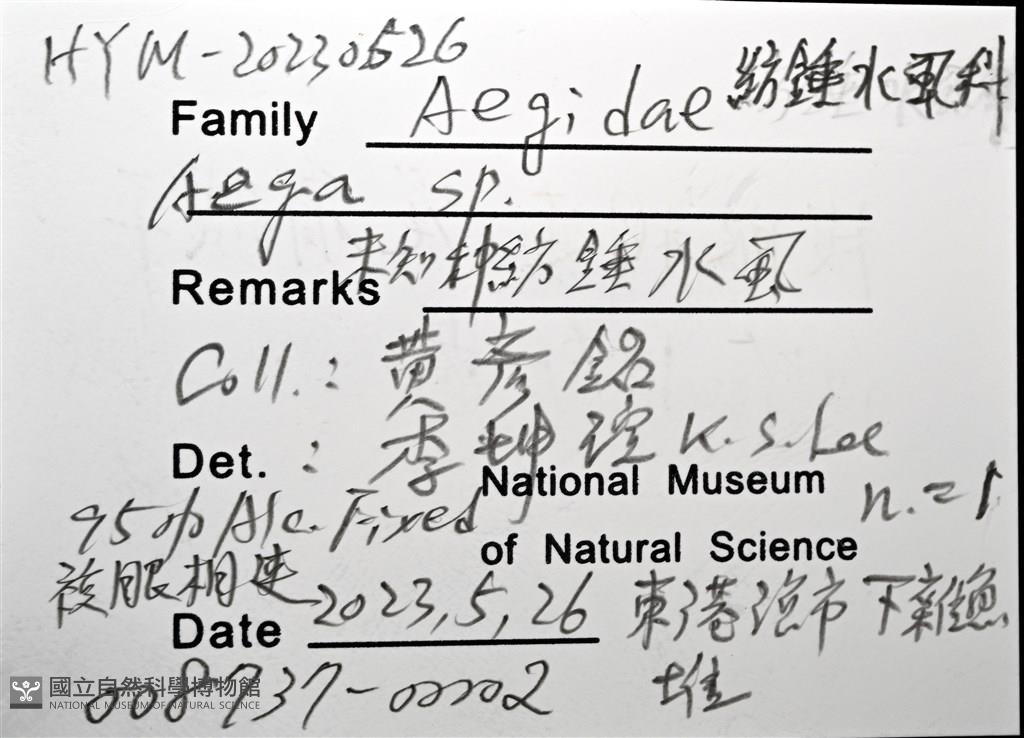 HYM-20230526
Family Aegidae 紡錘水虱科
Aega sp.
Remarks 未知種紡錘水虱
Coll.: 黃彥銘
Det.: 李坤瑄 K.S.Lee
National Museum n.=1
95% Alc. Fixed
of Natural Science
複眼相連
Date 2023,5,26 東港漁市下雜魚
008737-00002 堆
國立自然科學博物館
NATIONAL MUSEUM OF NATURAL SCIENCE